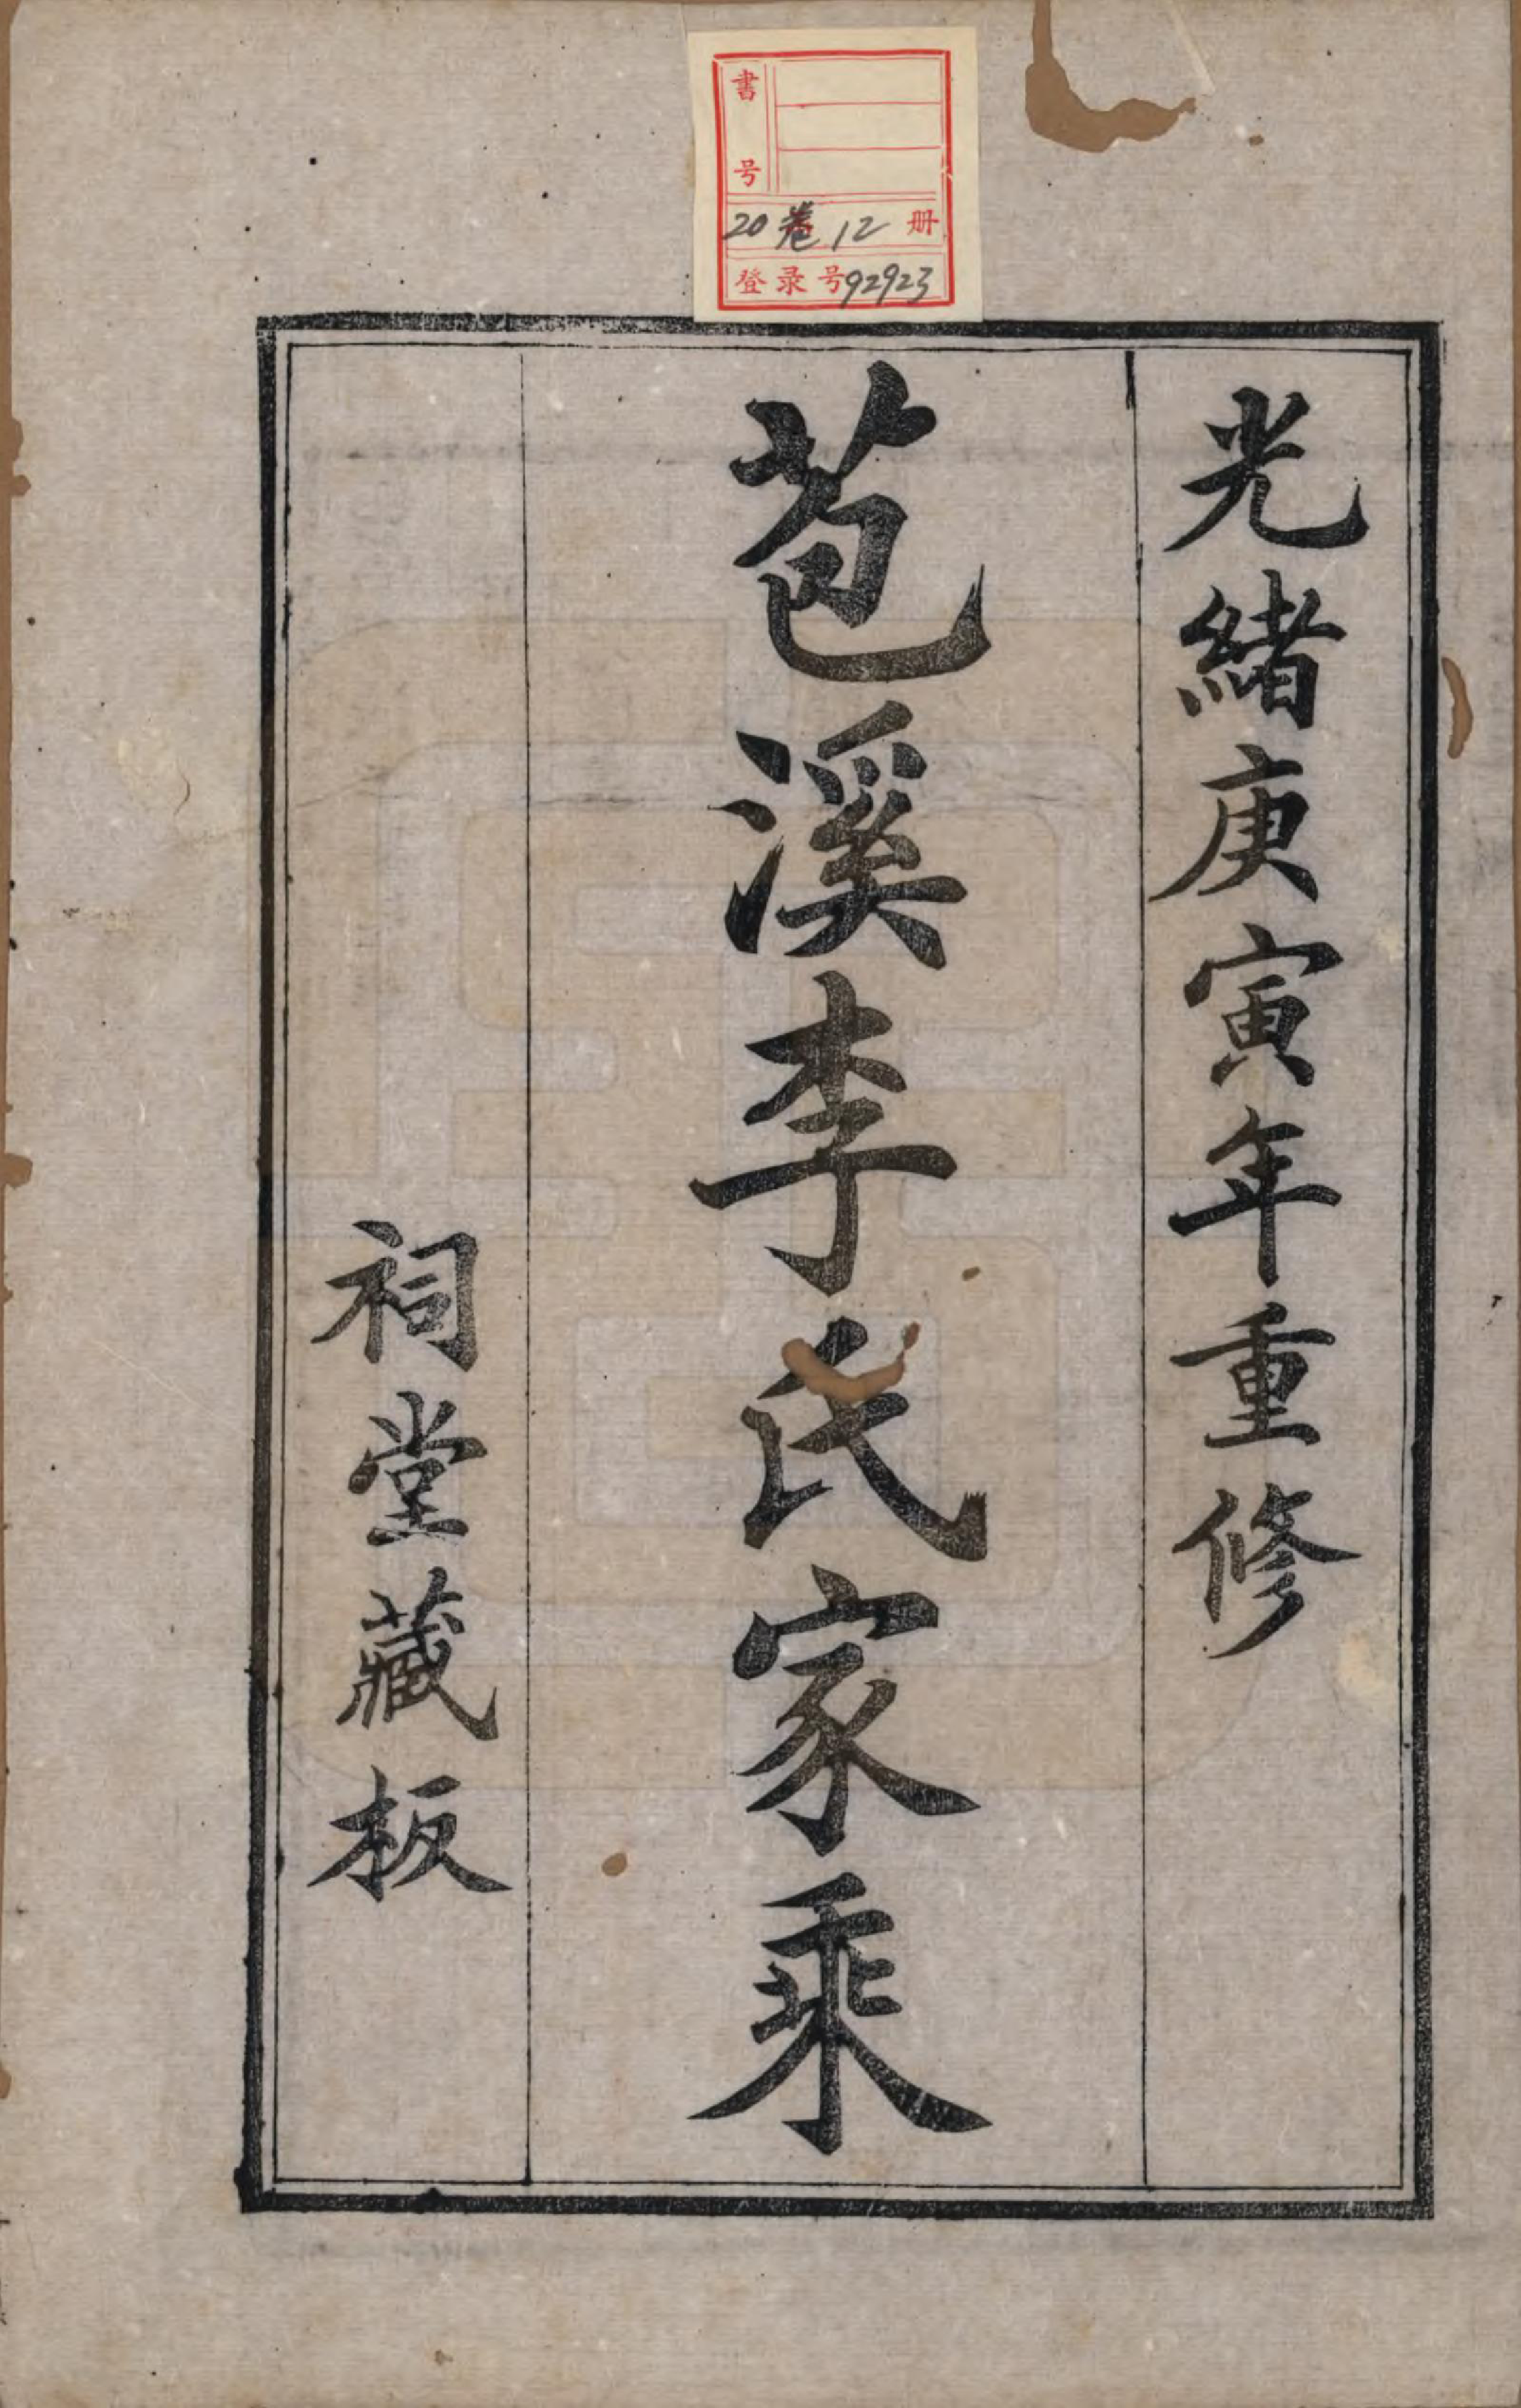 書号
20卷12册
登录号92923
光緒庚寅年重修
苞溪李氏家乘
祠堂藏板